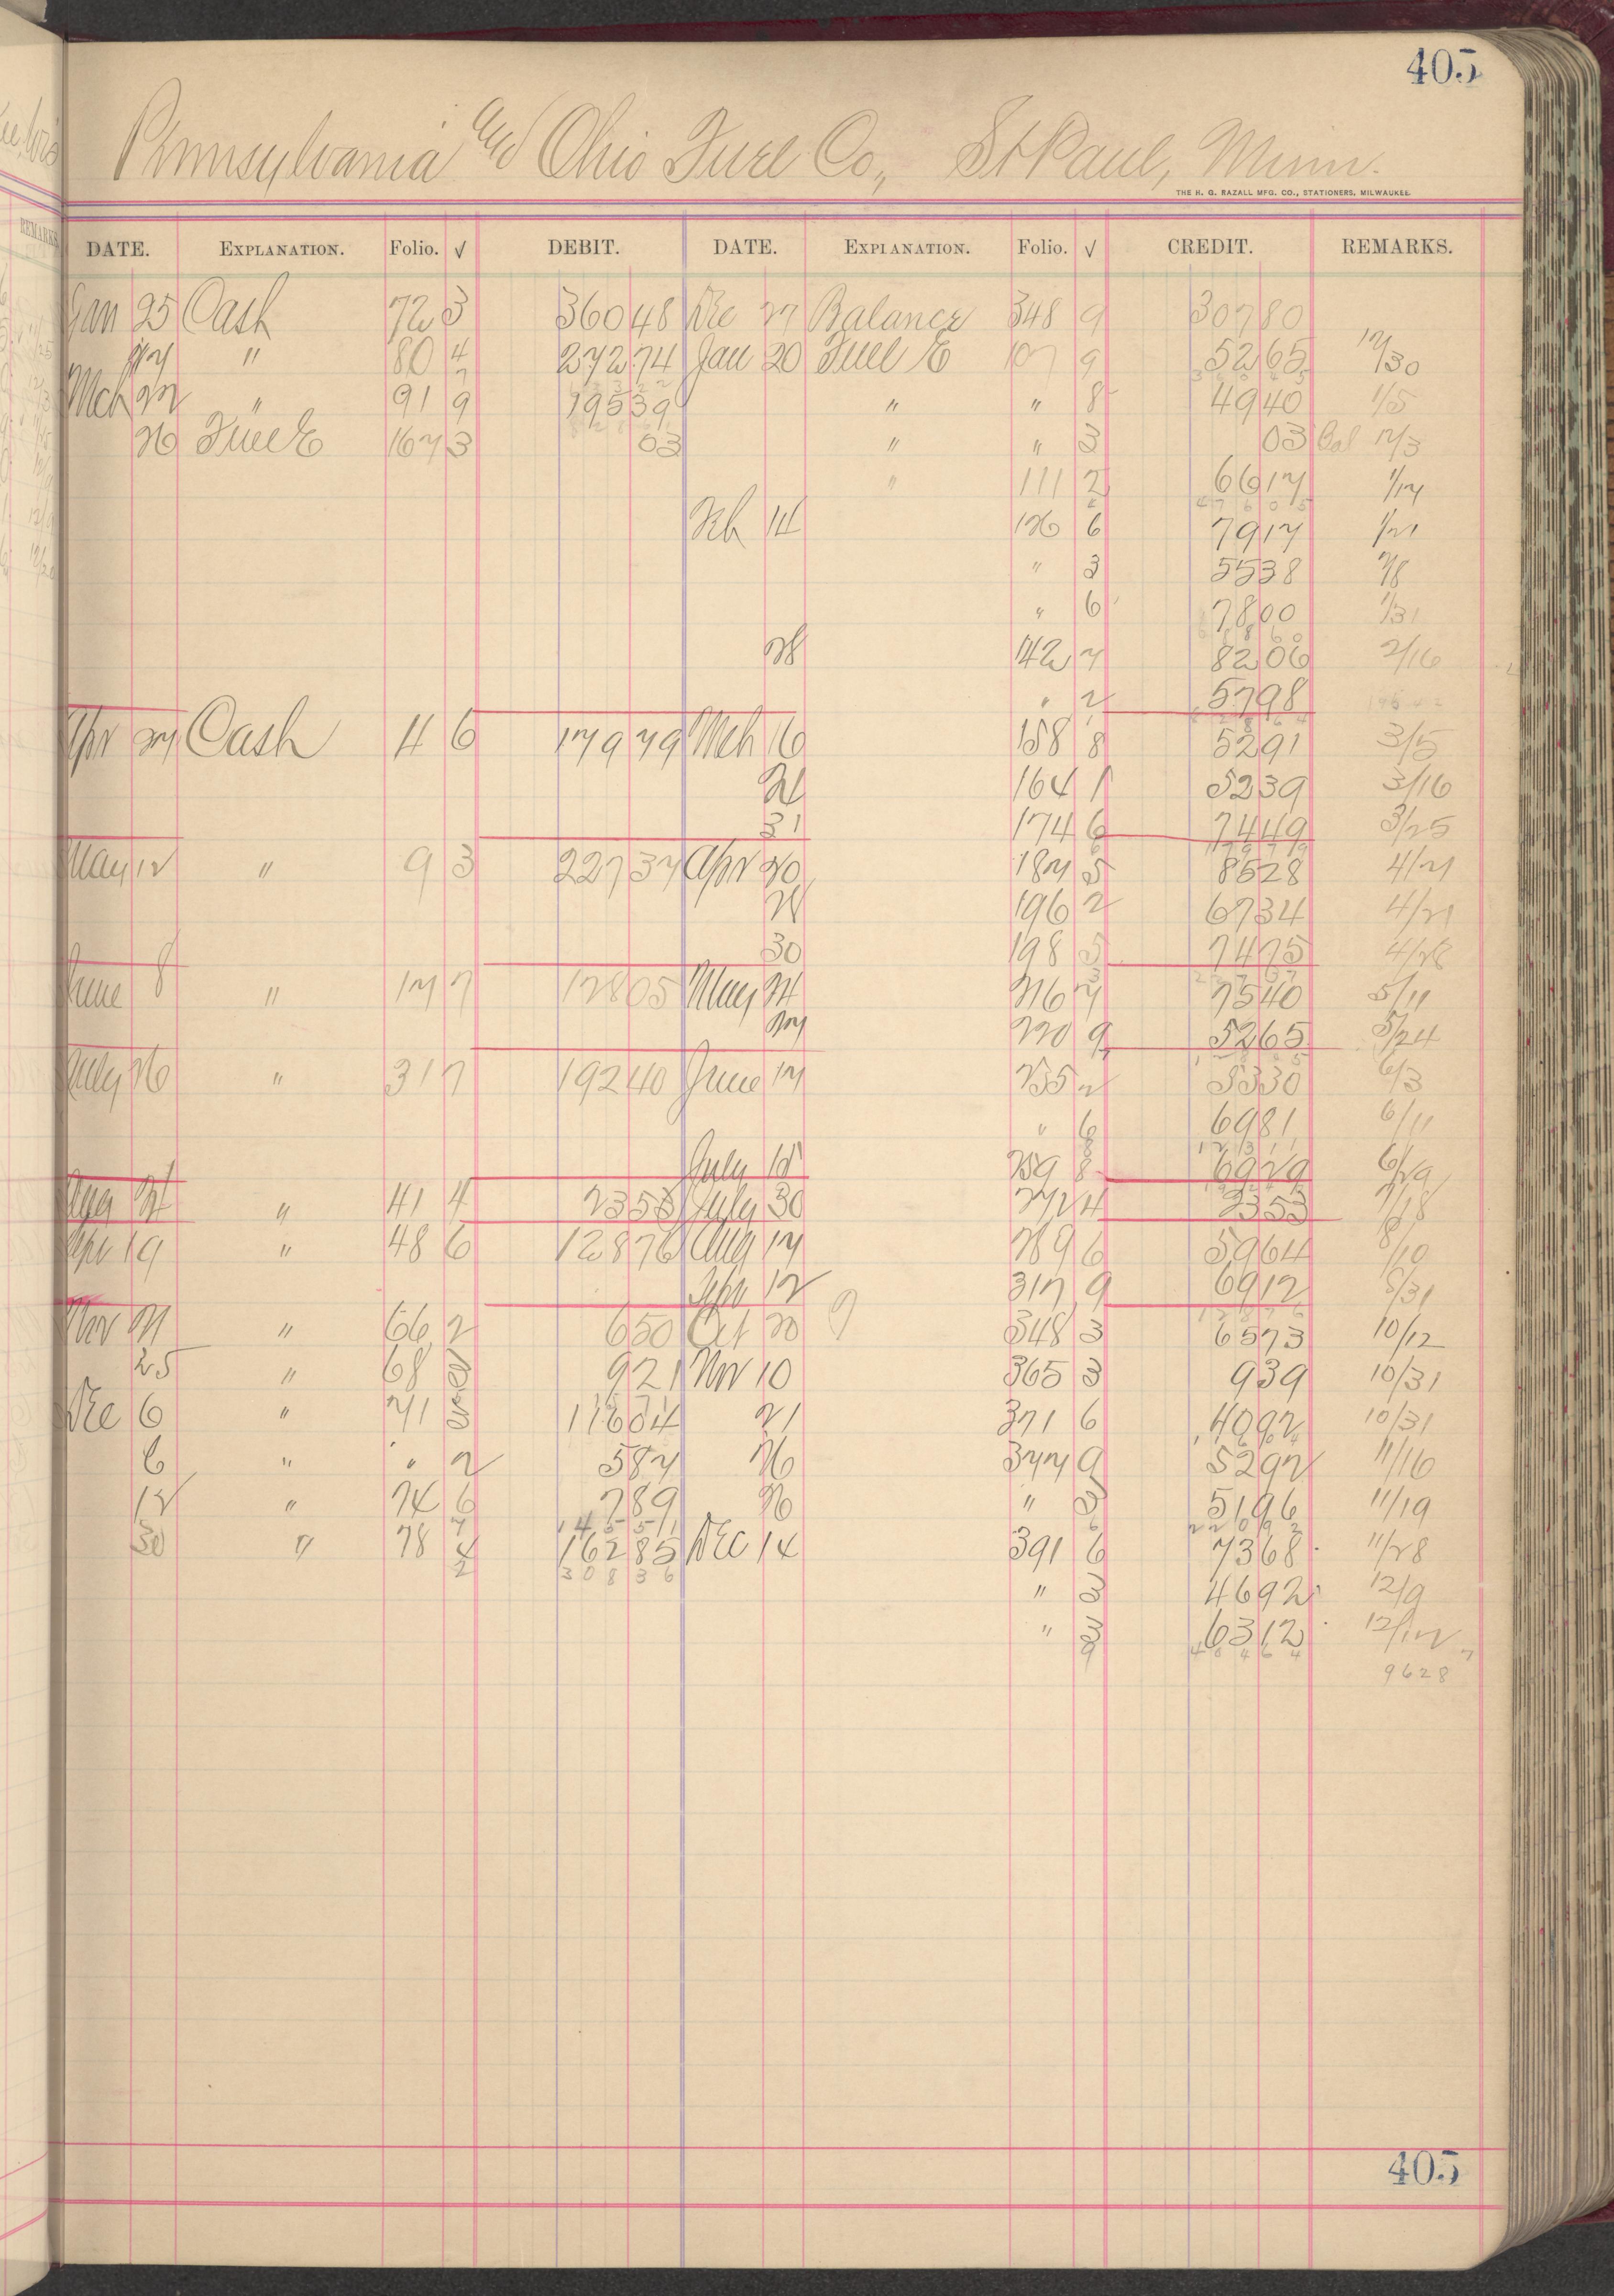 405
Pennsylvania and Ohio Fuel Co., St Paul, Minn.
THE H. G. RAZALL MFG. CO., STATIONERS, MILWAUKEE.
DATE. EXPLANATION. Folio. √ DEBIT. DATE. EXPLANATION. Folio. √ CREDIT. REMARKS.
Jan 25 Cash 72 3 360 48 Dec 27 Balance 348 9 307 80
" 80 4 272 74 Jan 20 Fuel E 107 9 52 65 12/30
Mch 22 " 91 9 195 39 " " 8 49 40 1/5
26 Fuel E 167 3 03 " " 3 03 Bal 12/3
" 111 2 66 17 1/17
Feb 14 126 6 79 17 1/21
" 3 55 38
" 6 78 00 1/31
28 142 7 82 06 2/16
" 2 57 98
Apr 27 Cash 4 6 179 79 Mch 16 158 8 52 91 3/5
24 164 1 52 39 3/16
31 174 6 74 49 3/25
May 12 " 9 3 227 37 Apr 20 187 5 85 28 4/7
28 196 2 67 34 4/21
30 198 5 74 75 4/28
June 8 " 17 7 128 05 May 24 216 7 75 40 5/11
27 220 9 52 65 5/24
July 26 " 31 7 192 40 June 17 235 2 53 30 6/3
" 6 69 81 6/11
July 12 259 8 69 29 6/29
Aug 24 " 41 4 23 53 July 30 272 4 23 53 7/18
19 " 48 6 128 76 Aug 17 289 6 59 64 8/10
Sep 12 317 9 69 12 8/31
Nov 21 " 66 2 6 50 Oct 20 348 3 65 73 10/12
25 " 68 3 9 21 Nov 10 365 3 9 39 10/31
Dec 6 " 71 3 116 04 21 371 6 40 92 10/31
6 " " 2 5 87 26 377 9 52 92 11/16
12 " 74 6 7 89 26 " 3 51 96 11/19
30 " 78 4 162 85 Dec 14 391 6 73 68 11/28
2 308 36 " 3 46 92 12/9
" 3 63 12 12/12
96 28
405